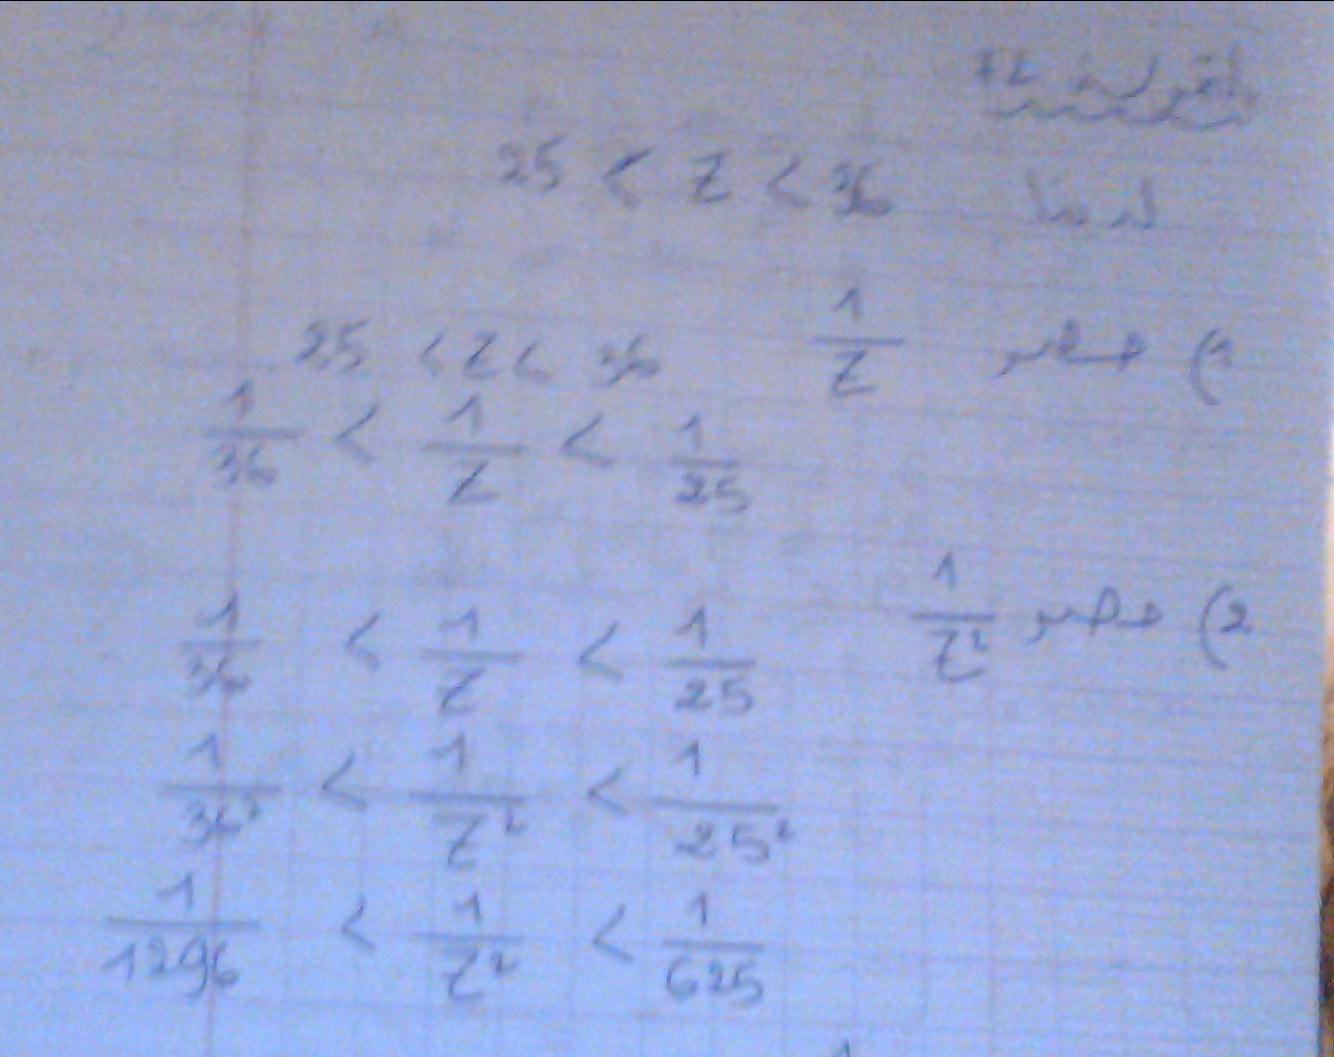 72
لدينا 25 < Z < 36
1) حصر 1/Z 25 < Z < 36
1/36 < 1/Z < 1/25
2) حصر 1/Z² 1/36 < 1/Z < 1/25
1/36² < 1/Z² < 1/25²
1/1296 < 1/Z² < 1/625